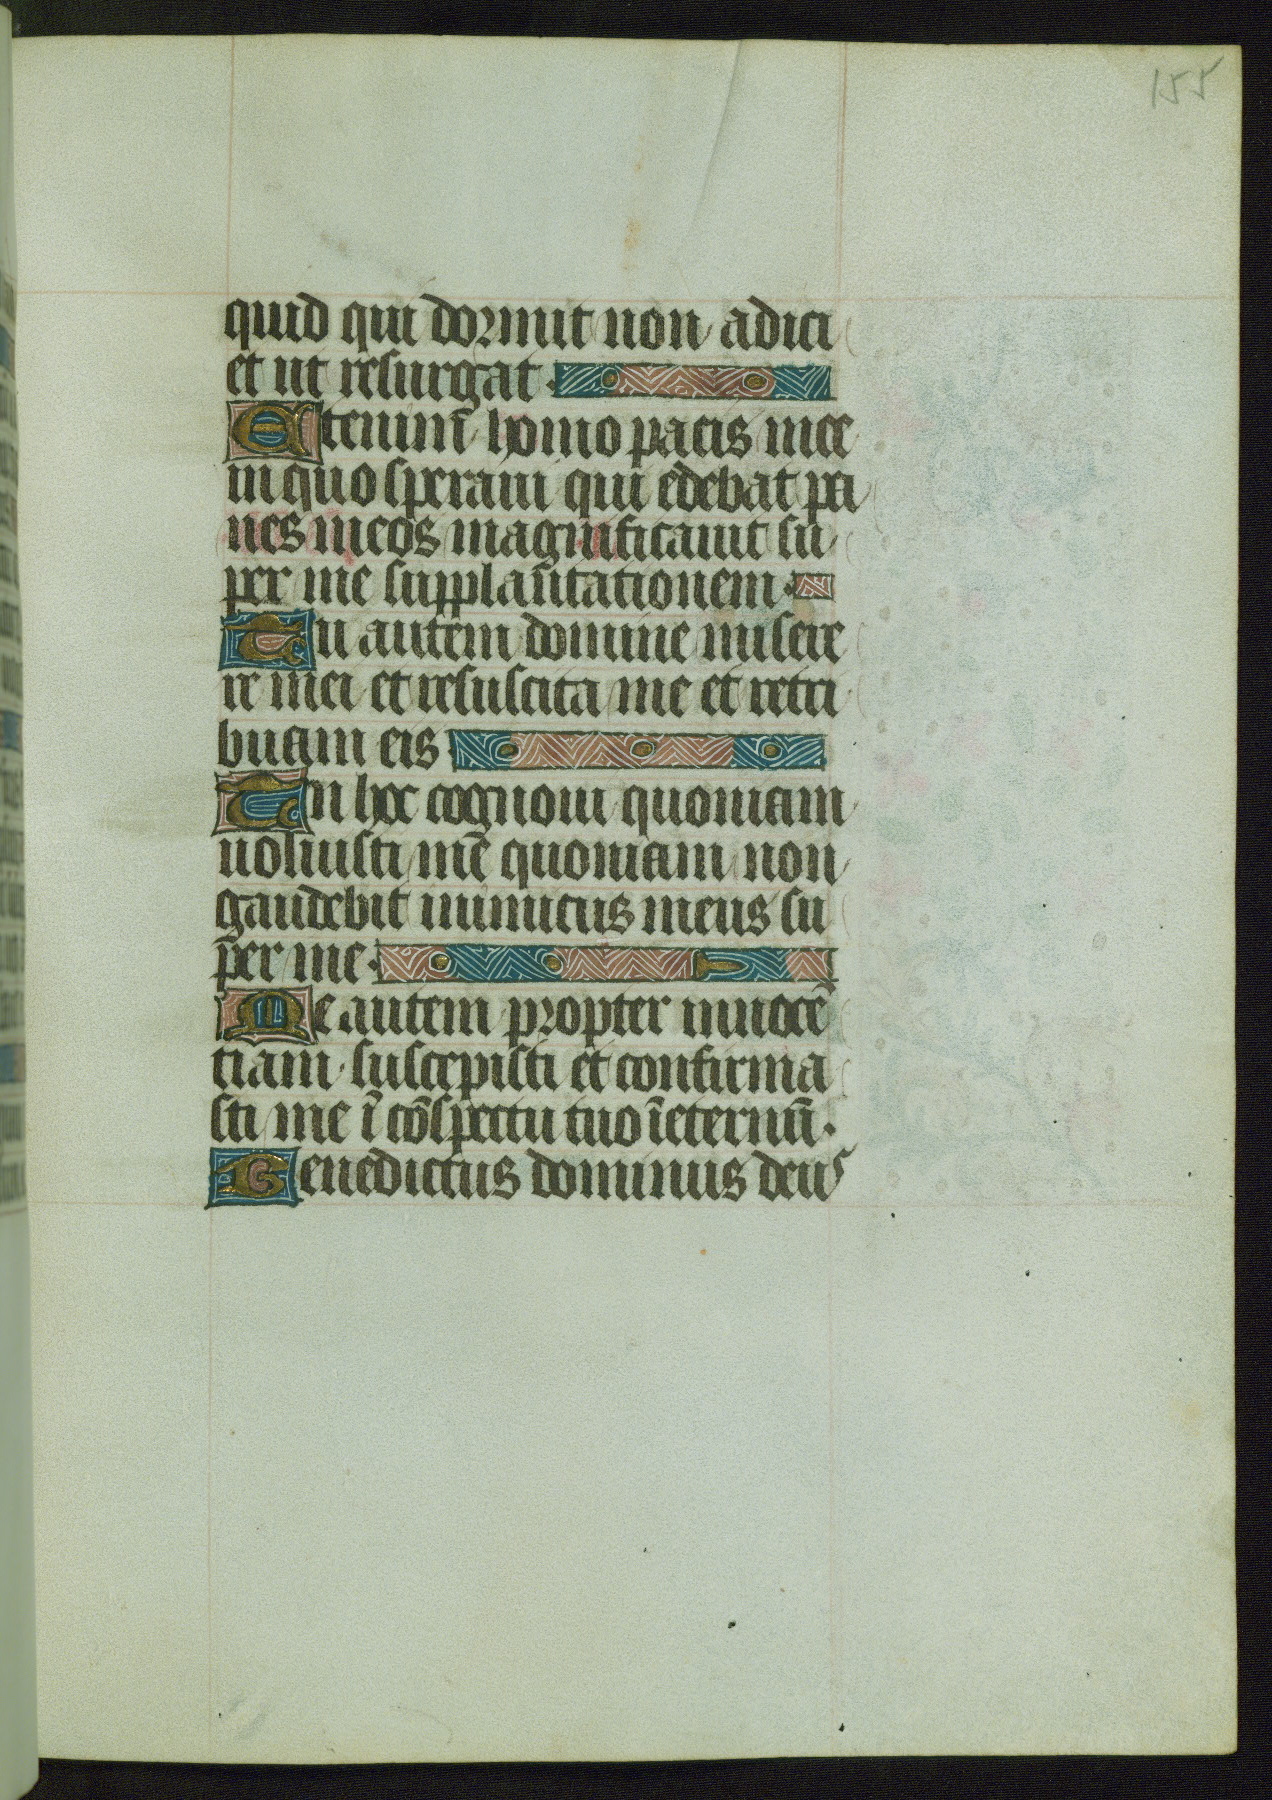 155
quid qui dormit non adici
et ut resurgat.
Etenim̄ homo pacis mee
in quo speraui qui edebat pa
nes meos magnificauit su
per me supplantationem.
Tu autem domine misere
re mei et resuscita me et retri
buam eis.
In hoc cognoui quoniam
uoluisti me quoniam non
gaudebit inimicus meus su
per me.
Me autem propter innocē
tiam suscepisti et confirma
sti me ī cōspectu tuo ī eternū.
Benedictus dominus deus